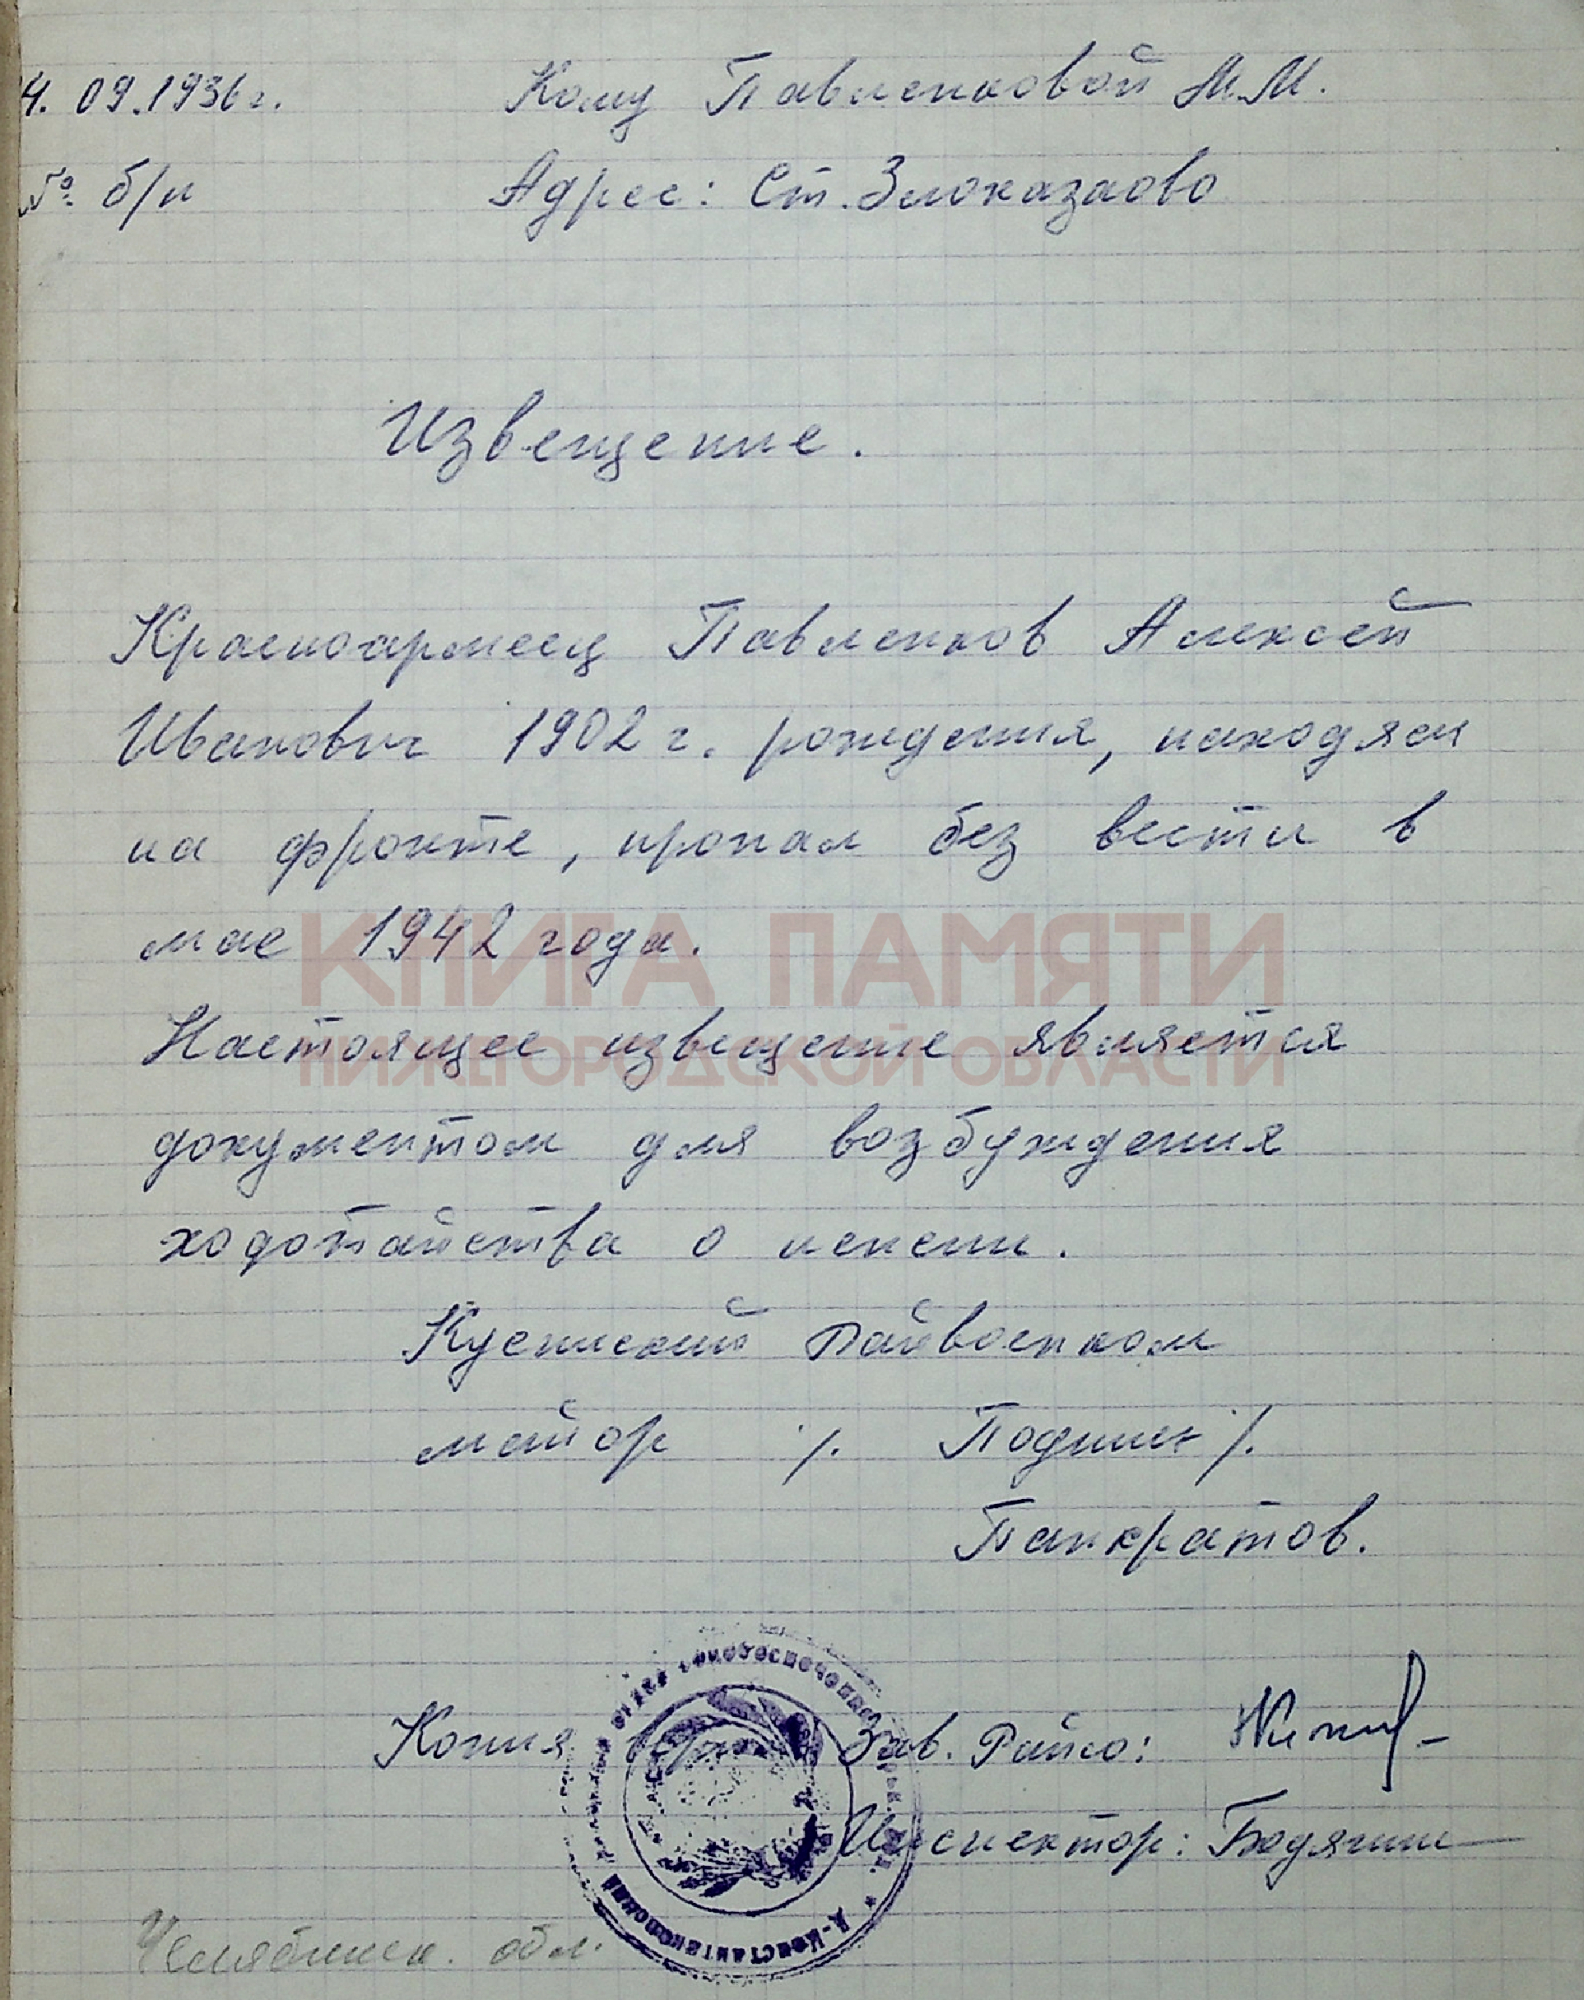 4. 09. 1936 г. Кому Павленковой М.М.
№ б/н Адрес: Ст. Злоказаово
Извещение.
Красноармеец Павленков Алексей
Иванович 1902 г. рождения, находясь
на фронте, пропал без вести в
мае 1942 года.
КНИГА ПАМЯТИ
Настоящее извещение является
НИЖЕГОРОДСКОЙ ОБЛАСТИ
документом для возбуждения
ходотайства о пенсии.
Кусинский Райвоенком
майор /. Подпись /.
Панкратов.
Копия Зав. Райсо:
Инспектор: Бодягин
Д-Константиновский
Челябинск. обл.